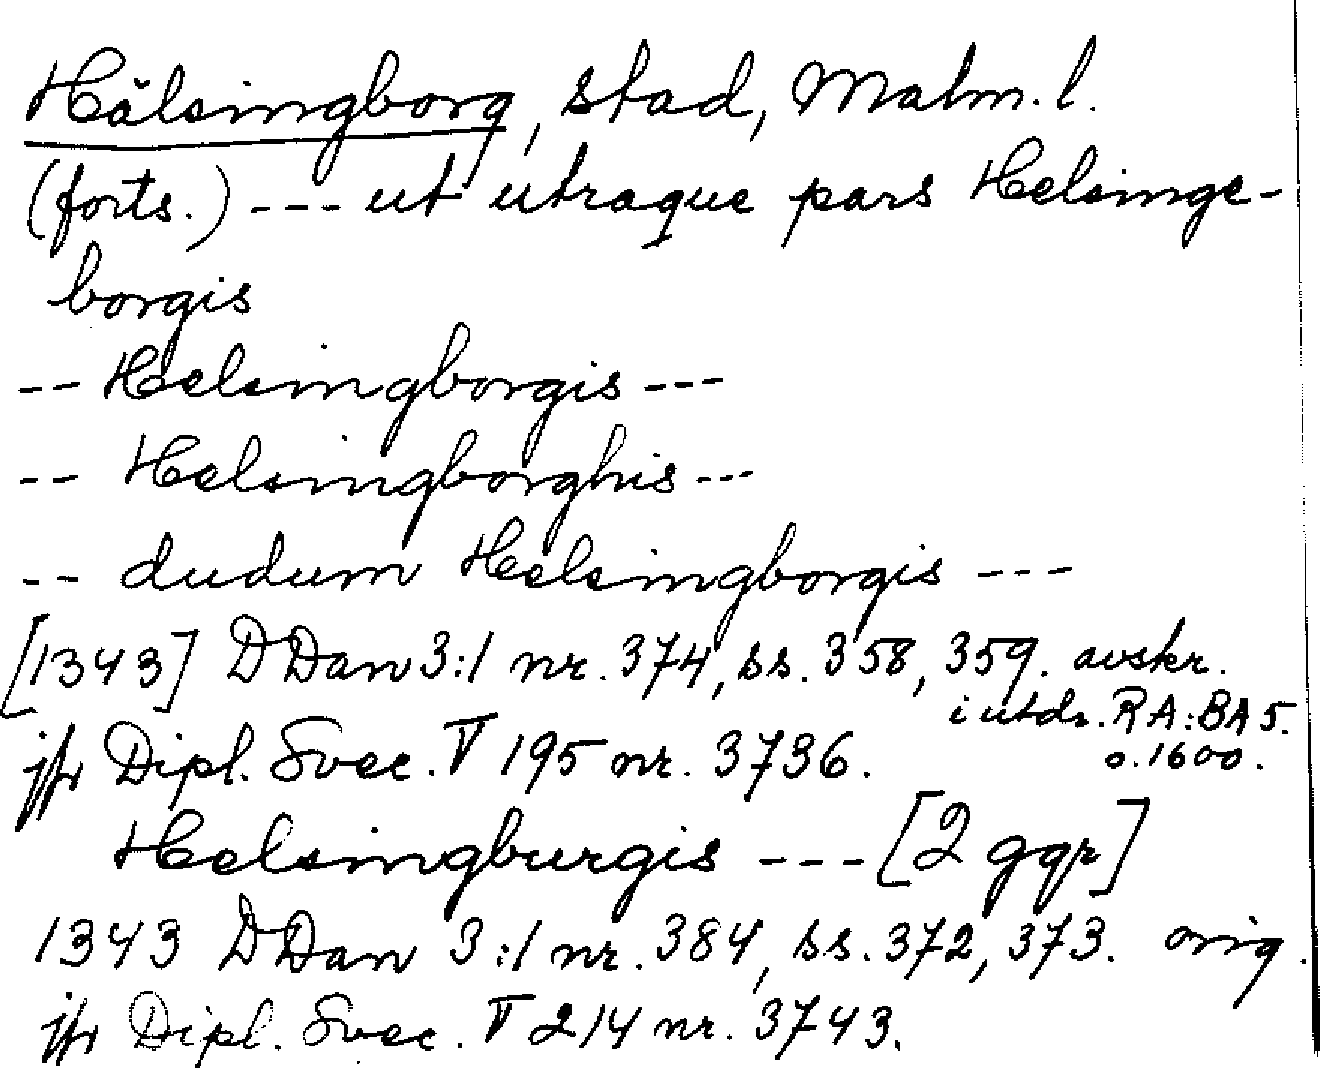 Hälsingborg, stad, Malm. l.
(forts.) --- ut utraque pars Helsinge-
borgis
-- Helsingborgis ---
-- Helsingborghis ---
-- dudum Helsingborgis ---
[1343] DDan 3:1 nr. 374, ss. 358, 359. avskr.
i utdr. RA: BA 5.
o. 1600.
jfr Dipl. Svec. V 195 nr. 3736.
Helsingburgis --- [2 ggr]
1343 DDan 3:1 nr. 384, ss. 372, 373. orig.
jfr Dipl. Svec. V 214 nr. 3743.